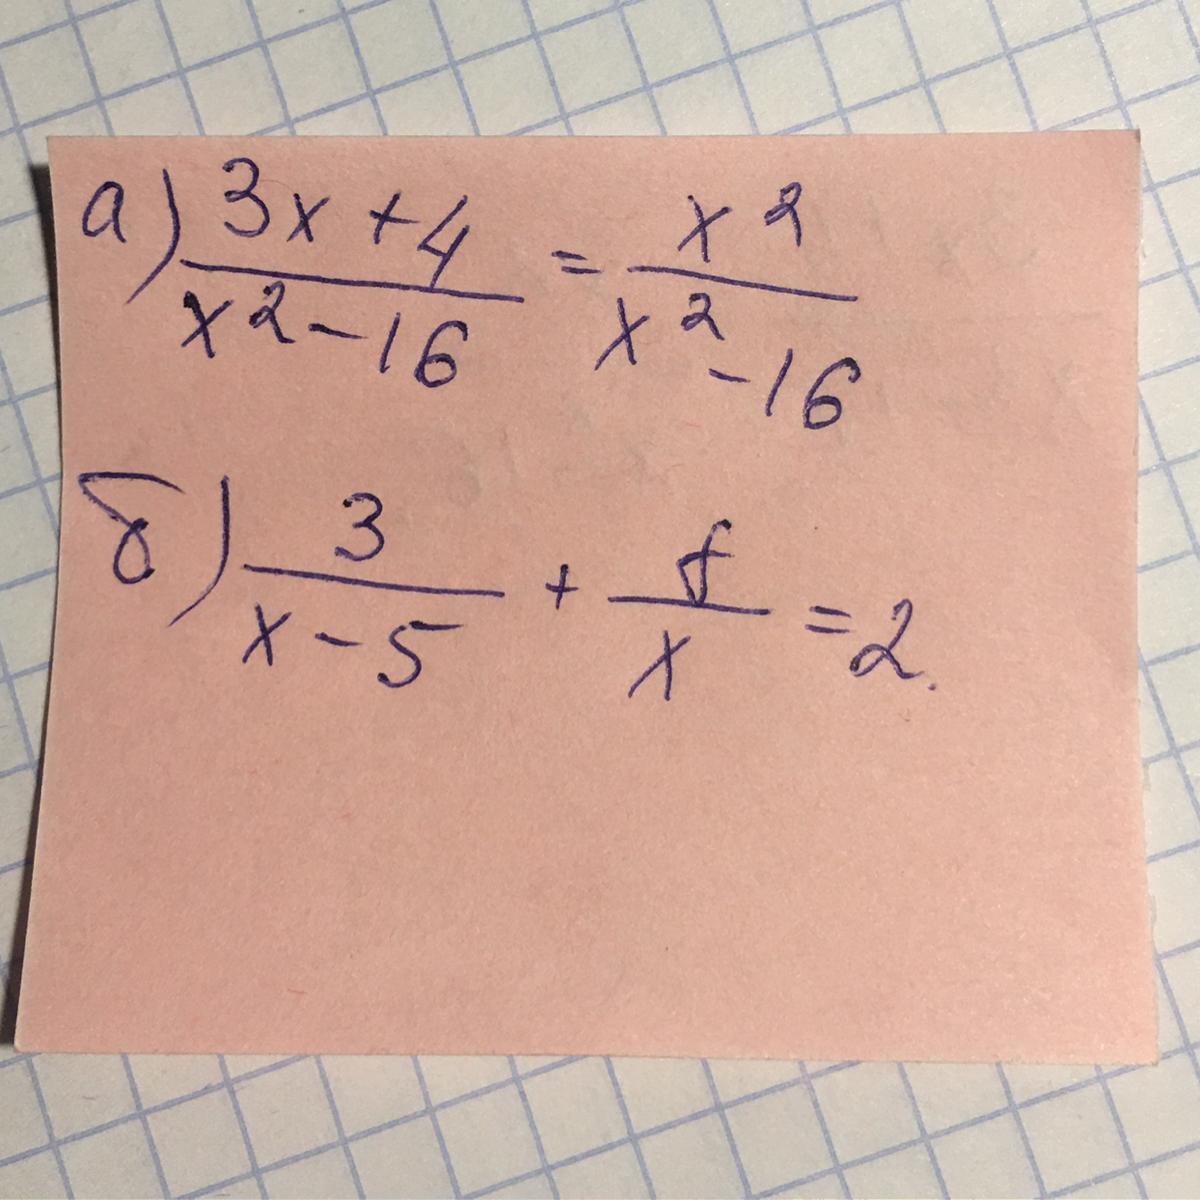 а) (3x + 4)/(x² - 16) = x²/(x² - 16)
б) 3/(x - 5) + 8/x = 2.